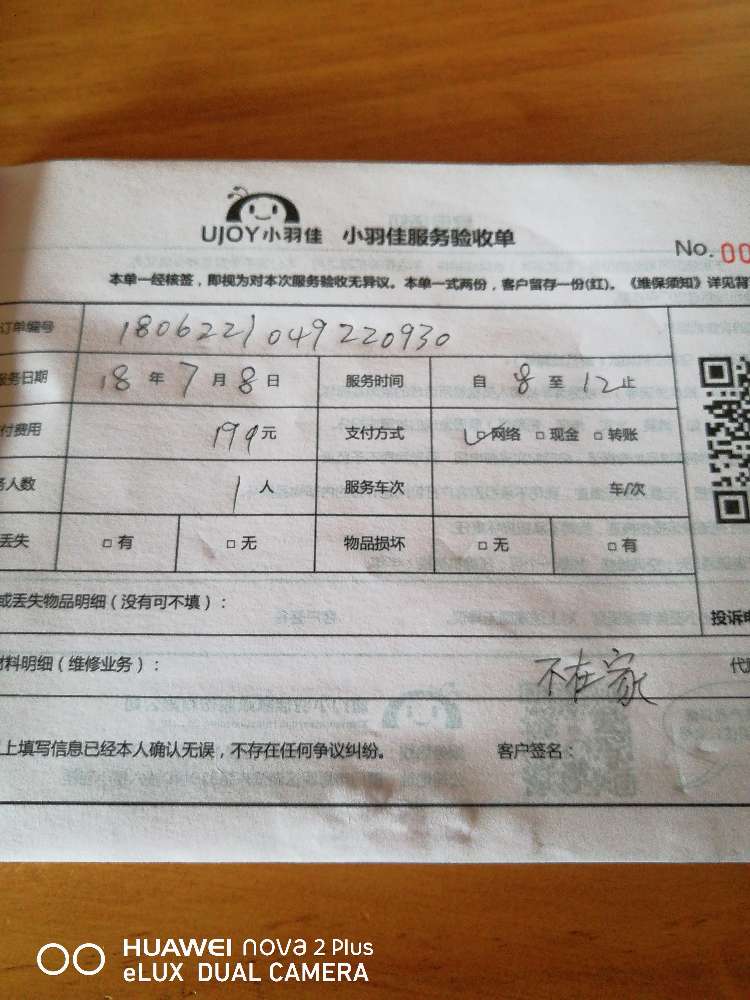 UJOY小羽佳 小羽佳服务验收单
No. 00
本单一经核签，即视为对本次服务验收无异议。本单一式两份，客户留存一份(红)。《维保须知》详见背
订单编号 1806221049220930
服务日期 18 年 7 月 8 日 服务时间 自 8 至 12 止
付费用 199元 支付方式 ☑网络 □现金 □转账
务人数 1 人 服务车次 车/次
丢失 □有 □无 物品损坏 □无 □有
或丢失物品明细（没有可不填）：
投诉电
材料明细（维修业务）：
不在家
上填写信息已经本人确认无误，不存在任何争议纠纷。 客户签名：
HUAWEI nova 2 Plus
eLUX DUAL CAMERA